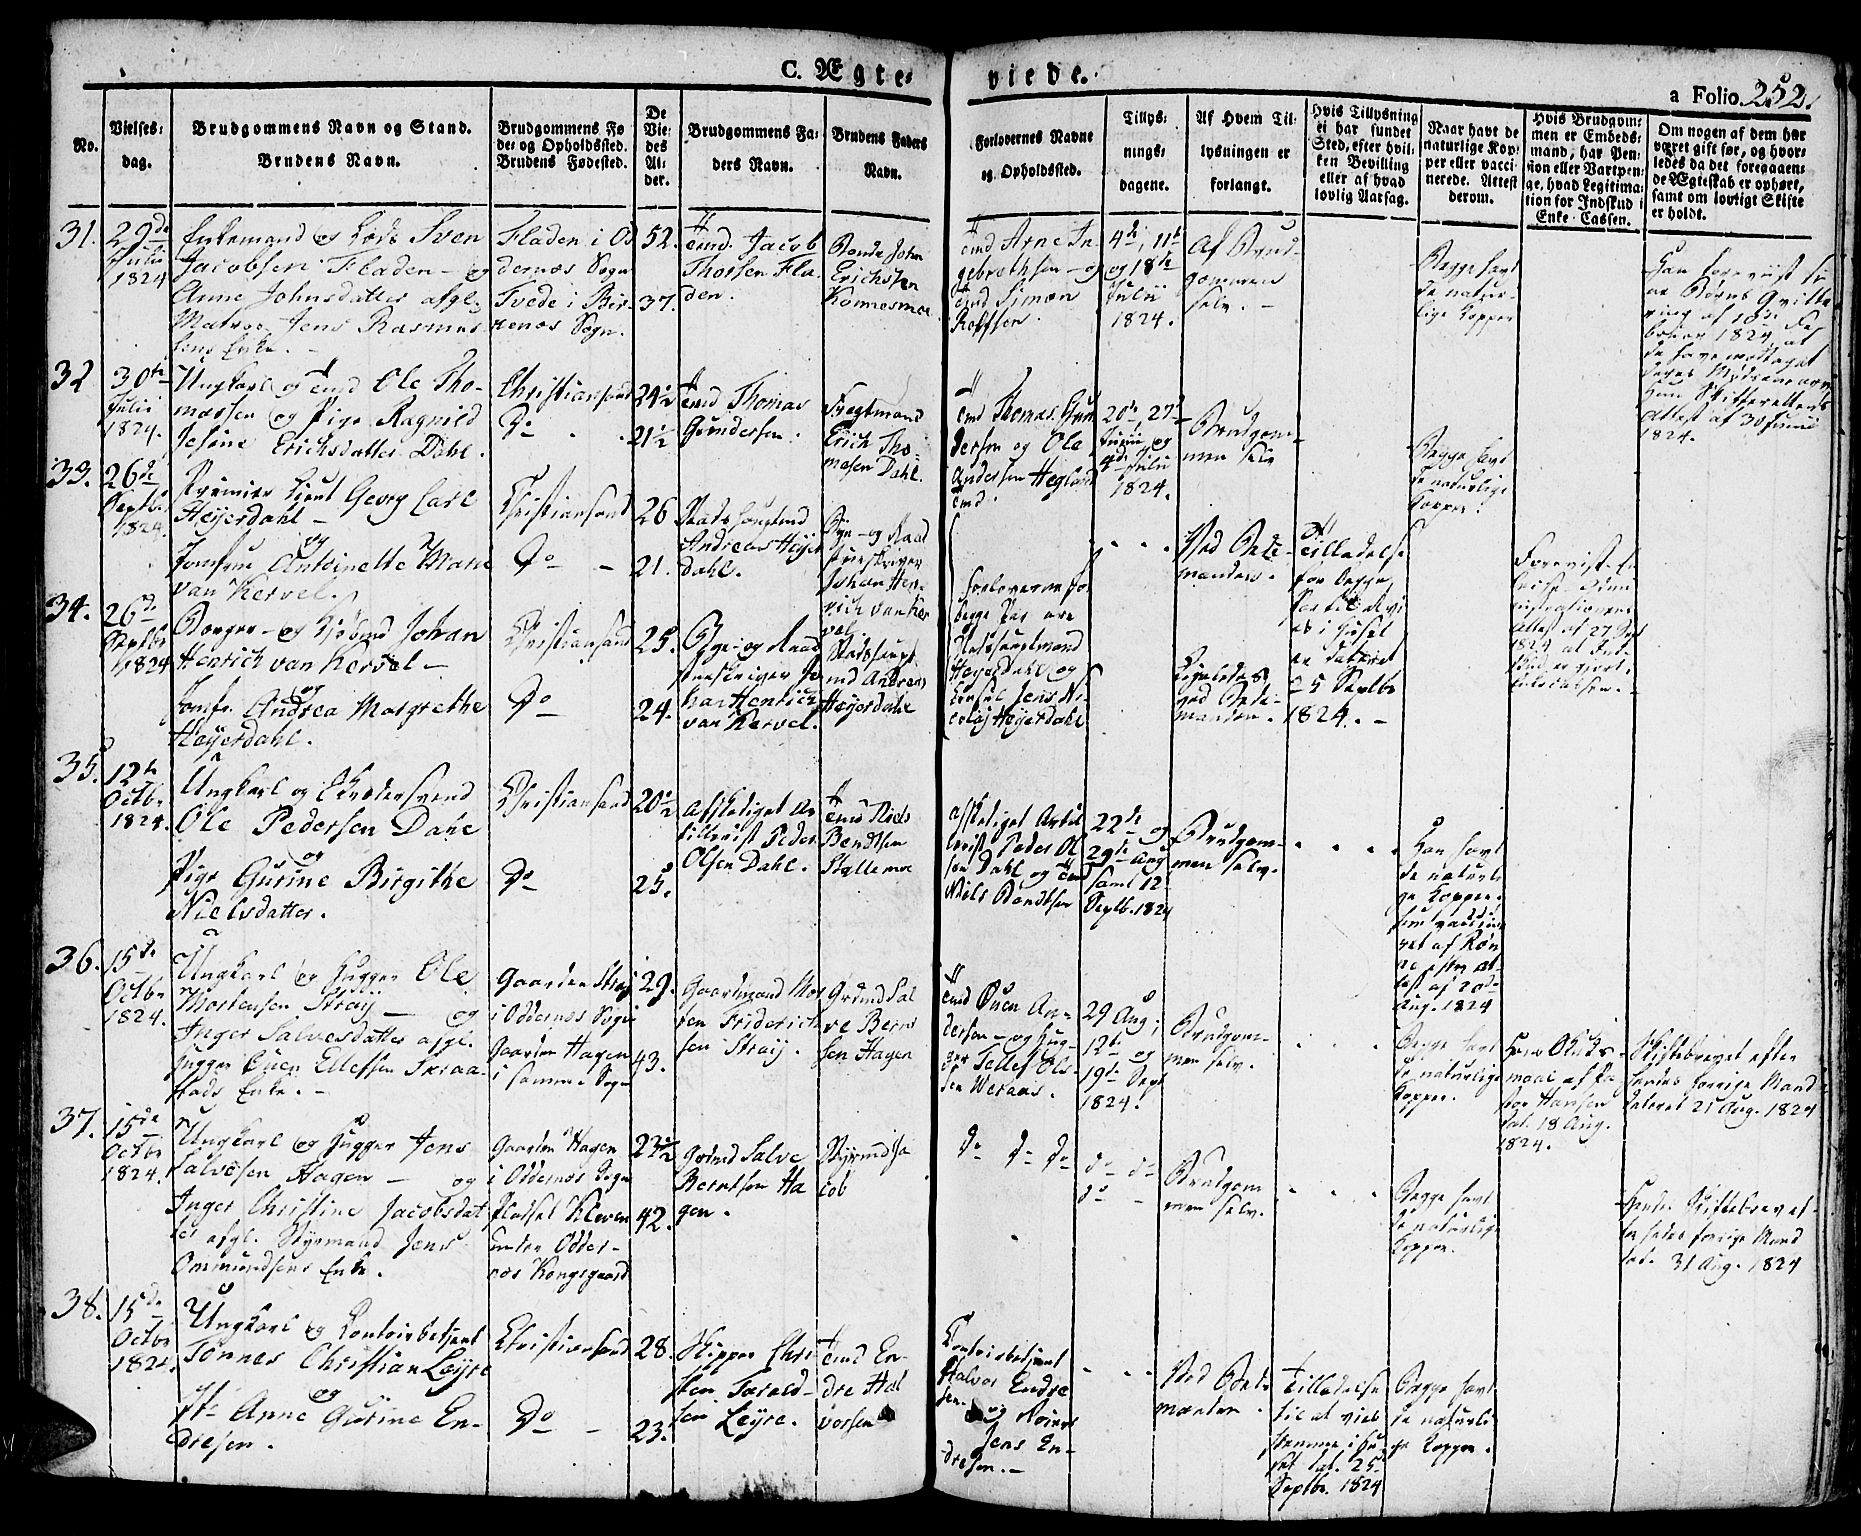 C. Ægte-
viede.
a Folio 252.
No.
Vielses-
dag.
Brudgommens Navn og Stand.
Brudens Navn.
Brudgommens Fø
de- og Opholdssted.
Brudens Fødested.
De
Vie-
des
Al-
der.
Brudgommens Fa-
ders Navn.
Brudens Faders
Navn.
Forlovernes Navne
og Opholdssted.
Tillys-
nings-
dagene.
Af Hvem Til-
lysningen er
forlangt.
Hvis Tillysning
ei har fundet
Sted, efter hvil-
ken Bevilling
eller af hvad
lovlig Aarsag.
Naar havt de
naturlige Kop-
per eller vacci-
nerede. Attest
derom.
Hvis Brudgom-
men er Embeds-
mand, har Pen-
sion eller Vartpen-
ge, hvad Legitima-
tion for Indskud i
Enke-Cassen.
Om nogen af dem har
været gift før, og hvor-
ledes da det foregaaen-
de Ægteskab er ophørt,
samt om lovligt Skifte
er holdt.
31.
29de
Julii
1824
Enkemand og Lods Sven
Jacobsen Fladen - og
Anne Johnsdatter afgl.
Matros Jens Rasmus
sens Enke. -
Fladen i Od
dernæs Sogn
Tvede i Bir-
kenæs Sogn.
52.
37.
Tmd. Jacob
Thorsen Fla-
den.
Bonde John
Erichsen
Tmd Arne In
gebrethsen - og
Tmd Simon
Roffsen.
4de, 11te
og 18de
Julii
1824.
Af Brud-
gommen
selv. -
Begge havt
de natur-
lige Kopper
Han foreviist si-
ne Børns Qvitte-
ring af
1824, at
de have modtaget
deres Mødrenearv
Hun Skifterettens
Attest af 30 Junii
1824.
32
30te
Julii
1824.
Ungkarl og Tmd Ole Tho-
massen og Pige Ragnild
Josine Erichsdatter Dahl.
Christiansand
Do
24½
21½
Tmd Thomas
Gundersen.
Fragtmand
Erich Tho-
masen Dahl.
Tmd Thomas Gun
dersen og Ole
Andersen Hegland
Tmd.
20de, 27de
Junii og
4de Julii
1824.
Brudgom-
men selv
Begge havt
de naturlige
Kopper.
33.
26de
Septbr
1824.
Premier Lieut Georg Carl
Heyerdahl -
og
Jomfru Antoinette Marie
van Kervel.
Christiansand
Do -
26
21.
Stadshauptmd
Andreas Heyer
dahl.
Bye- og Raad
stueskriver
Johan Hen-
rich van Ker
vel
Forloverne for
begge Par ere
Stadshauptmand
Heyerdahl og
Consul Jens Ni-
colaj Heyerdahl
Ved Bede-
manden.
Tilladelse
for begge
Par til at vi
es i Huset
er dateret
25 Septbr
1824. -
34.
26de
Septbr
1824
Borger- og Kjøbmd Johan
Henrich van Kervel -
og
Jomfr. Andrea Margrethe
Heyerdahl.
Christiansand
Do
25.
24.
Bye- og Raad
stueskriver Jo
han Henrich
van Kervel.
Stadshaupt
md Andreas
Heyerdahl
Ligeledes
ved Bede-
manden.
35.
12te
Octbr
1824.
Ungkarl og Skredersvend
Ole Pedersen Dahl
og
Pige Gurine Birgithe
Nielsdatter.
Christiansand
Do
20½
25.
Afskediget Ar
tillerist Peder
Olsen Dahl.
Tmd Niels
Bendtsen
Stallemoe
Afskediget Artil
lerist Peder Ol
sen Dahl og Tmd
Niels Bendtsen
22de og
29de Aug
samt 12
Septb. 1824
Brudgom-
men selv.
Han havt
de naturli
ge Kopper.
36.
15de
Octbr
1824.
Ungkarl og Hugger Ole
Mortensen Straij - og
Inger Salvesdatter afgl.
Hugger Ouen Ellefsen Skraa-
stads Enke. -
Gaarden Straij
i Oddernæs Sogn
Gaarden Hagen
i samme Sogn
29.
43.
Gaardmand Mor
ten Friderich
sen Straij.
Grdmd Sal
ve Bern
sen Hagen
Tmd Ouen An-
dersen - og Hug-
ger Tellef Ols-
sen Weraas.
29 Aug.
12te og
19de Sept
1824.
Brudgom-
men selv.
Begge havt
de naturlige
Kopper.
Hans
af Pa
stor Hansen
dat. 18 Aug.
1824.
Skiftebrevet efter
hendes forrige Mand
dateret 21 Aug. 1824
37.
15de
Octbr
1824.
Ungkarl og Hugger Jens
Salvesen Hagen - og
Inger Christine Jacobsdat
ter afgl. Styrmand Jens
Ommundsens Enke.
Gaarden Hagen
i Oddernæs Sogn
Pladset Kleven
under Odder-
næs Kongsgaard
23½
42.
Grdmd Salve
Berntsen Ha
gen.
Styrmd Ja
cob
do do do
do do
do -
Brudgom
men selv.
Begge havt
de naturlige
Kopper.
Hendes Skiftebrevet
hendes forrige Mand
dat. 31 Aug. 1824
38.
15de
Octbr
1824.
Ungkarl og Contoirbetjent
Tønnes Christian Leyre
og
Anne Gurine En-
dresen.
Christiansand
Do -
28.
23.
Skipper Chri
sten Tarald-
sen Leyre.
Tmd En-
dre Hal
vorsen
Contoirbetjent
Halvor Endre
sen.
og
Jens En-
dresen. -
Ved Bede-
manden.
Tilladelse
til at vies
hjemme i Hu
set dat. 25
Septbr. 1824
Begge havt
de naturli
ge Kopper.